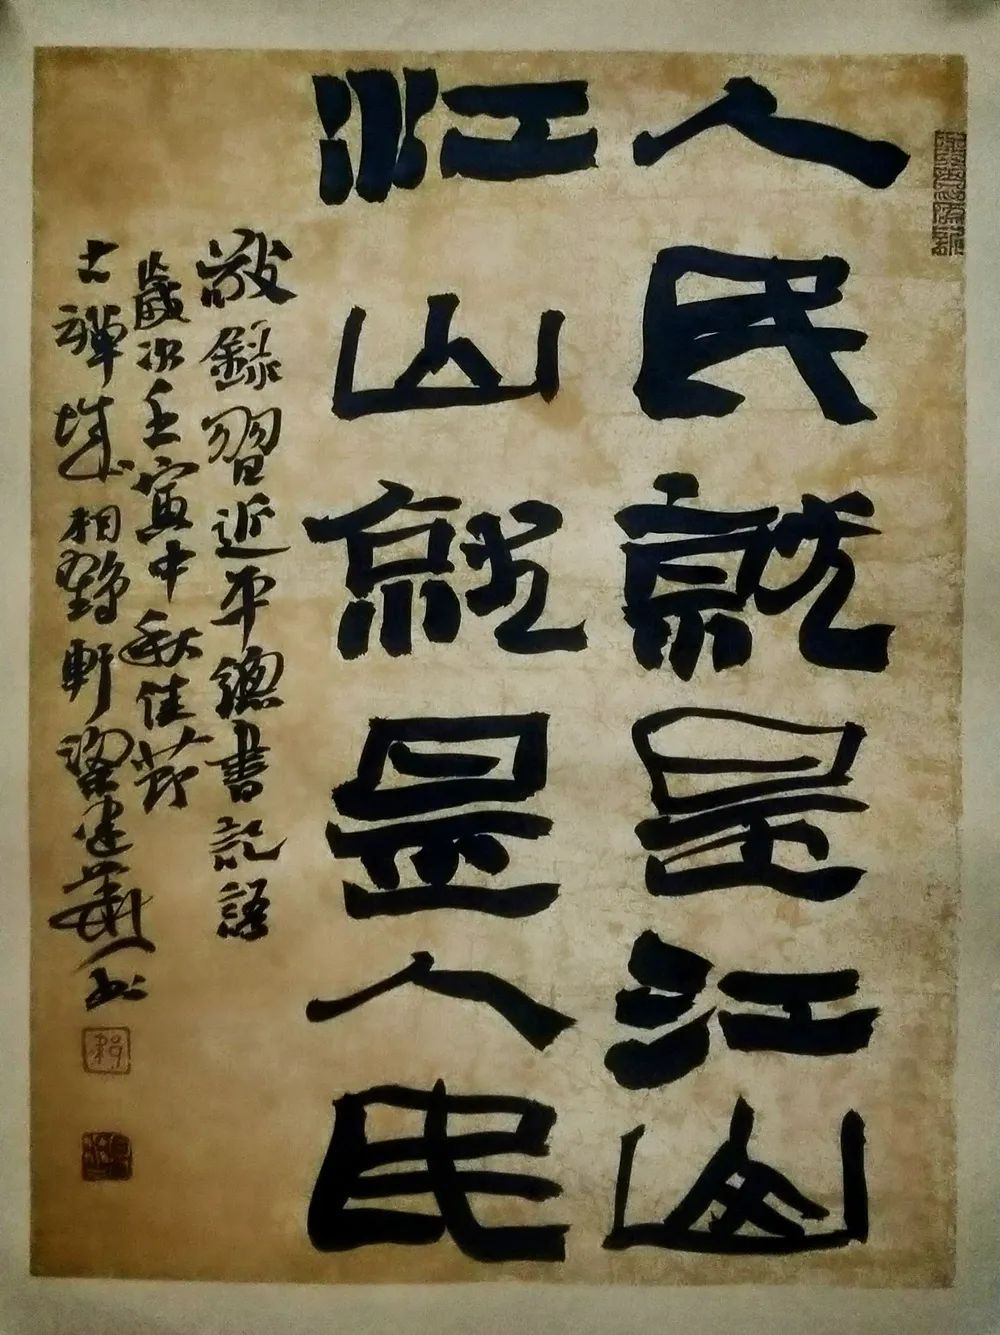 人民就是江山
江山就是人民
敬録習近平總書記語
歲次壬寅中秋佳節
古禪城相對軒梁建華書